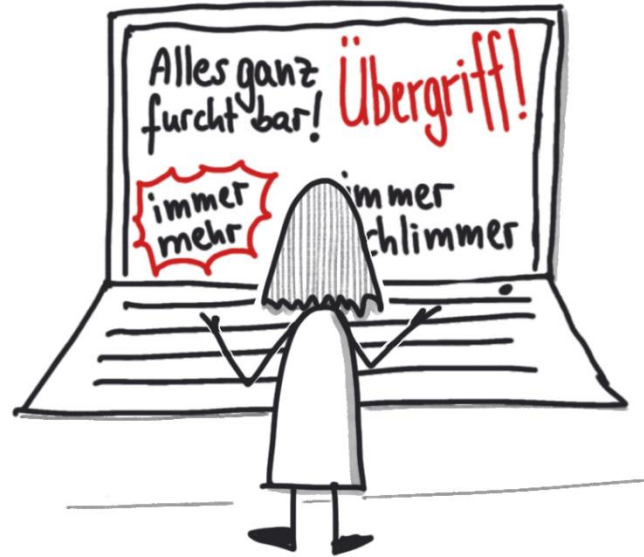 Alles ganz
furchtbar!
Übergriff!
immer
mehr
immer
chlimmer